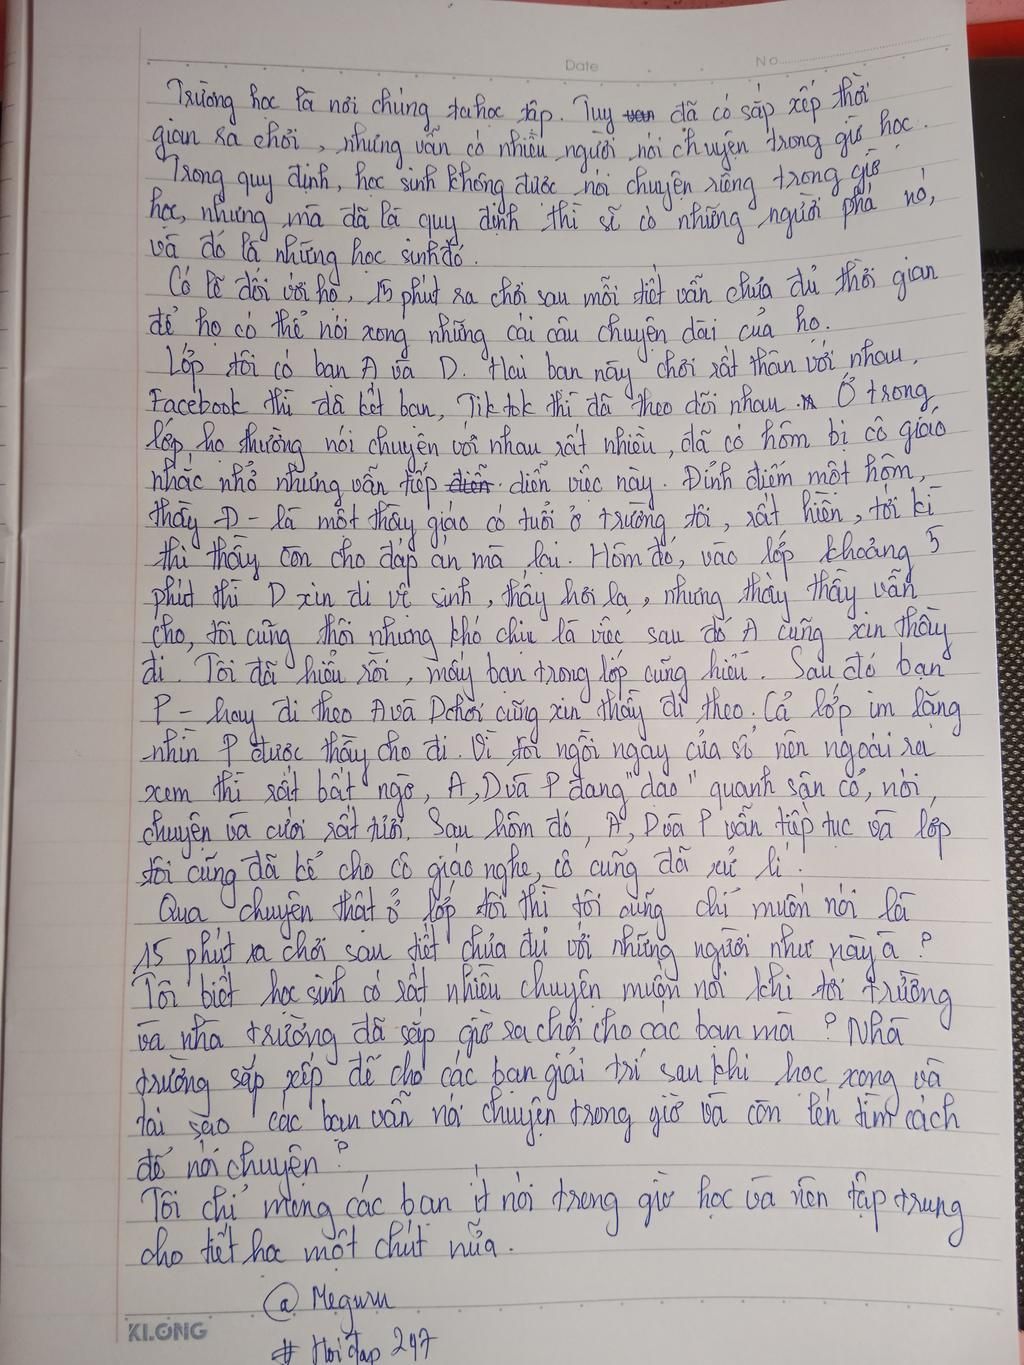 Date No
Trường học là nơi chúng ta học tập. Tuy vẫn đã có sắp xếp thời
gian ra chơi, nhưng vẫn có nhiều người nói chuyện trong giờ học.
Trong quy định, học sinh không được nói chuyện riêng trong giờ
học, nhưng mà đã là quy định thì sẽ có những người phá nó,
và đó là những học sinh đó.
Có lẽ đối với họ, 15 phút ra chơi sau mỗi tiết vẫn chưa đủ thời gian
để họ có thể nói xong những cái câu chuyện dài của họ.
Lớp tôi có bạn A và D. Hai bạn này chơi rất thân với nhau,
Facebook thì đã kết bạn, Tiktok thì đã theo dõi nhau. Ở trong
lớp, họ thường nói chuyện với nhau rất nhiều, đã có hôm bị cô giáo
nhắc nhở nhưng vẫn tiếp diễn diễn việc này. Đỉnh điểm một hôm,
thầy Đ - là một thầy giáo có tuổi ở trường tôi, rất hiền, tới kì
thi thầy còn cho đáp án mà lại. Hôm đó, vào lớp khoảng 5
phút thì D xin đi vệ sinh, thấy hơi lạ, nhưng thầy thầy vẫn
cho, tôi cũng thôi nhưng khó chịu là việc sau đó A cũng xin thầy
đi. Tôi đã hiểu rồi, mấy bạn trong lớp cũng hiểu. Sau đó bạn
P - hay đi theo A và D chơi cũng xin thầy đi theo. Cả lớp im lặng
nhìn P được thầy cho đi. Vì tôi ngồi ngay cửa sổ nên ngoái ra
xem thì rất bất ngờ, A, D và P đang "dạo" quanh sân cỏ, nói
chuyện và cười rất tươi. Sau hôm đó, A, D và P vẫn tiếp tục và lớp
tôi cũng đã kể cho cô giáo nghe, cô cũng đã xử lí.
Qua chuyện thật ở lớp tôi thì tôi cũng chỉ muốn nói là
15 phút ra chơi sau tiết chưa đủ với những người như này à?
Tôi biết học sinh có rất nhiều chuyện muốn nói khi tới trường
và nhà trường đã sắp giờ ra chơi cho các bạn mà? Nhà
trường sắp xếp để cho các bạn giải trí sau khi học xong và
tại sao các bạn vẫn nói chuyện trong giờ và còn lén tìm cách
để nói chuyện?
Tôi chỉ mong các bạn ít nói trong giờ học và nên tập trung
cho tiết học một chút nữa.
@ Meguru
KLONG
# Hoidap 247